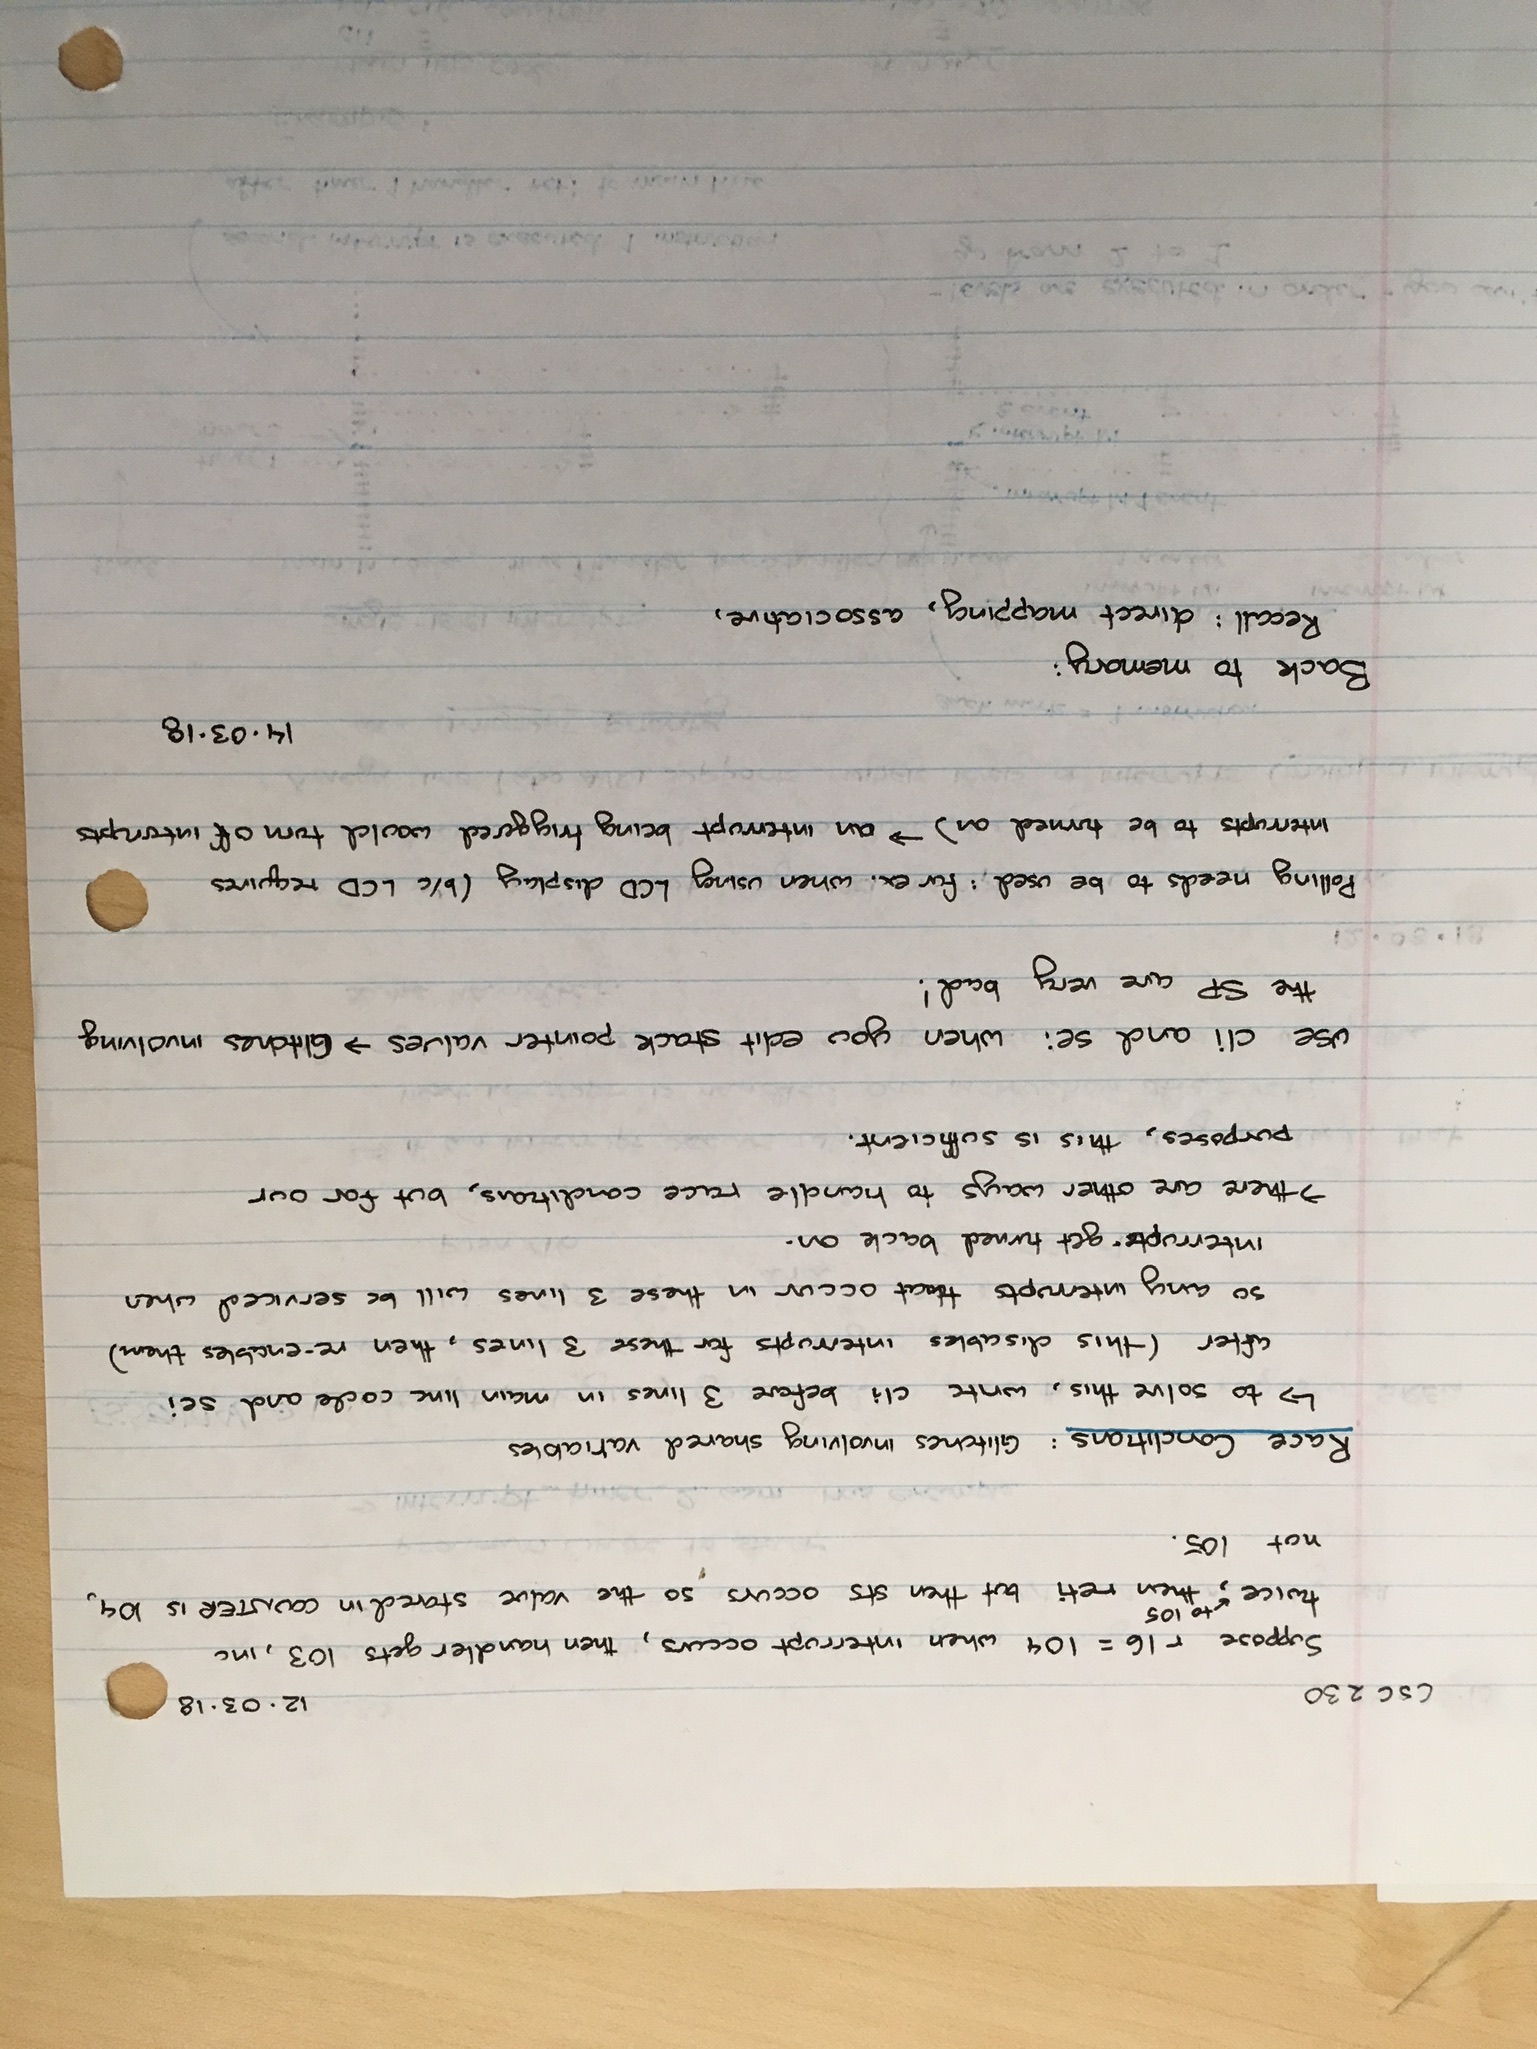 CSC 230 12.03.18
Suppose r16 = 104 when interrupt occurs, then handler gets 103, inc
to 105
twice, then reti but then sts occurs so the value stored in COUNTER is 104,
not 105.
Race Conditions: Glitches involving shared variables
↳ to solve this, write cli before 3 lines in main line code and sei
after (this disables interrupts for these 3 lines, then re-enables them)
so any interrupts that occur in these 3 lines will be serviced when
interrupts get turned back on.
→ there are other ways to handle race conditions, but for our
purposes, this is sufficient.
use cli and sei when you edit stack pointer values → Glitches involving
the SP are very bad!
Polling needs to be used: for ex. when using LCD display (b/c LCD requires
interrupts to be turned on) → an interrupt being triggered would turn off interrupts
14.03.18
Back to memory:
Recall: direct mapping, associative,